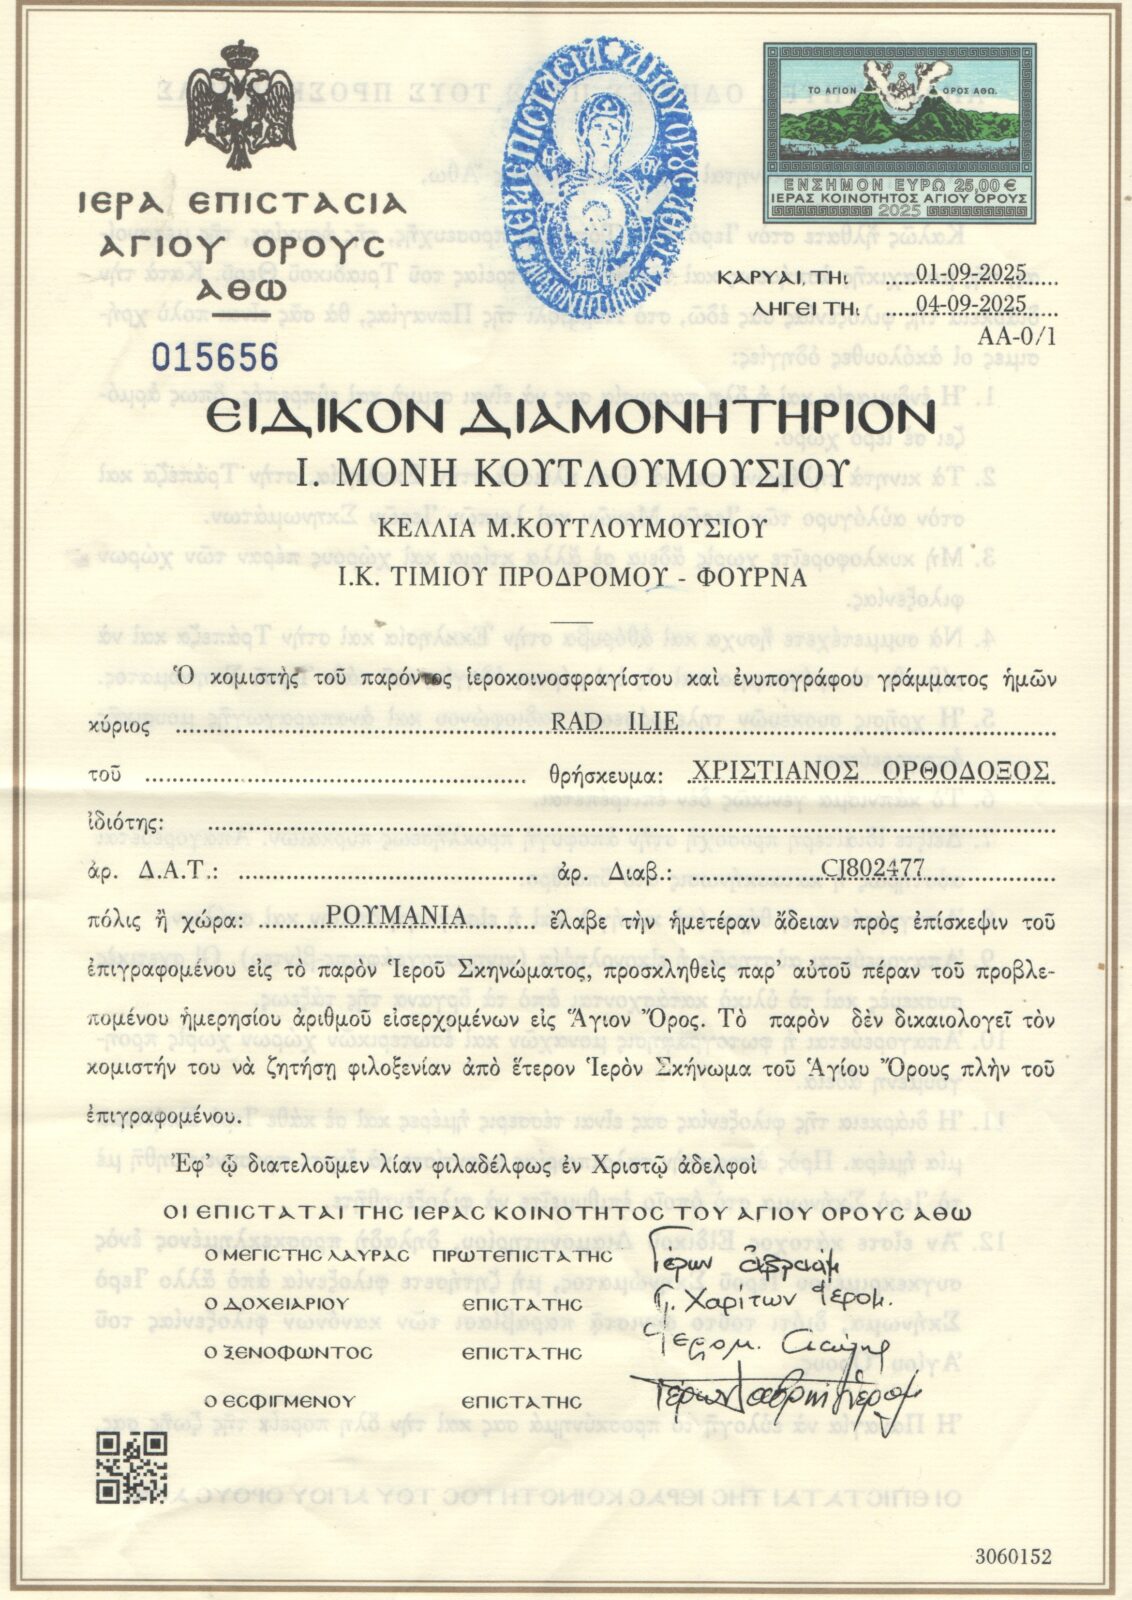 ΙΕΡΑ ΕΠΙΣΤΑСΙΑ
ΑΓΙΟΥ ΟΡΟΥС
ΑΘω
015656
ΙΕΡΑ ΕΠΙСΤΑCΙΑ ΑΓΙΟΥ ΟΡΟΥС
ΤΟ ΑΓΙΟΝ ΟΡΟΣ ΑΘΩ.
ΕΝΣΗΜΟΝ ΕΥΡΩ 25,00 €
ΙΕΡΑΣ ΚΟΙΝΟΤΗΤΟΣ ΑΓΙΟΥ ΟΡΟΥΣ
2025
ΚΑΡΥΑΙ ΤΗ: 01-09-2025
ΛΗΓΕΙ ΤΗ: 04-09-2025
ΑΑ-0/1
ΕΙΔΙΚΟΝ ΔΙΑΜΟΝΗΤΗΡΙΟΝ
Ι. ΜΟΝΗ ΚΟΥΤΛΟΥΜΟΥΣΙΟΥ
ΚΕΛΛΙΑ Μ.ΚΟΥΤΛΟΥΜΟΥΣΙΟΥ
Ι.Κ. ΤΙΜΙΟΥ ΠΡΟΔΡΟΜΟΥ - ΦΟΥΡΝΑ
Ὁ κομιστὴς τοῦ παρόντος ἱεροκοινοσφραγίστου καὶ ἐνυπογράφου γράμματος ἡμῶν
κύριος RAD ILIE
τοῦ θρήσκευμα: ΧΡΙΣΤΙΑΝΟΣ ΟΡΘΟΔΟΞΟΣ
ἰδιότης:
ἀρ. Δ.Α.Τ.: ἀρ. Διαβ.: CJ802477
πόλις ἢ χώρα: ΡΟΥΜΑΝΙΑ ἔλαβε τὴν ἡμετέραν ἄδειαν πρὸς ἐπίσκεψιν τοῦ
ἐπιγραφομένου εἰς τὸ παρὸν Ἱεροῦ Σκηνώματος, προσκληθεὶς παρ᾽ αὐτοῦ πέραν τοῦ προβλε-
πομένου ἡμερησίου ἀριθμοῦ εἰσερχομένων εἰς Ἅγιον Ὄρος. Τὸ παρὸν δὲν δικαιολογεῖ τὸν
κομιστήν του νὰ ζητήσῃ φιλοξενίαν ἀπὸ ἕτερον Ἱερὸν Σκήνωμα τοῦ Ἁγίου Ὄρους πλὴν τοῦ
ἐπιγραφομένου.
Ἐφ᾽ ᾧ διατελοῦμεν λίαν φιλαδέλφως ἐν Χριστῷ ἀδελφοὶ
ΟΙ ΕΠΙСΤΑΤΑΙ ΤΗС ΙΕΡΑС ΚΟΙΝΟΤΗΤΟС ΤΟΥ ΑΓΙΟΥ ΟΡΟΥС ΑΘω
Ο ΜΕΓΙСΤΗС ΛΑΥΡΑС ΠΡωΤΕΠΙСΤΑΤΗС Γέρων Ἀβραάμ
Ο ΔΟΧΕΙΑΡΙΟΥ ΕΠΙСΤΑΤΗС Γ. Χαρίτων Ἱερομ.
Ο ΞΕΝΟΦωΝΤΟС ΕΠΙСΤΑΤΗС Ἱερομ.
Ο ΕСΦΙΓΜΕΝΟΥ ΕΠΙСΤΑΤΗС Γέρων
3060152